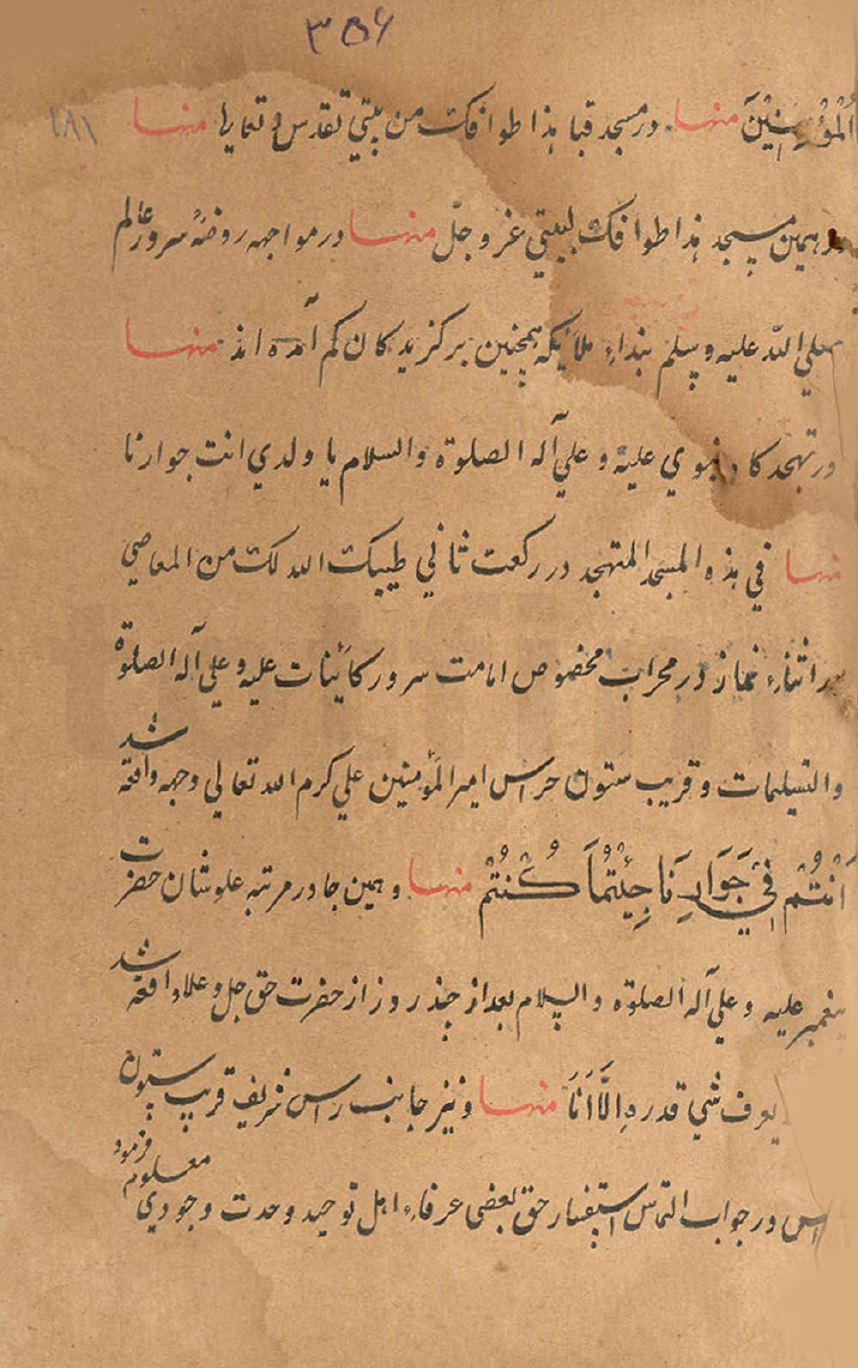 ۳۵۶
۱۸۱
الْمُؤْمِنِیْنَ منها در مسجد قبا هذا طوافك من بیتي تقدس و تعالی منها
در همین مسجد هذا طوافك لبیتي عز و جلّ منها در مواجهه روضهٔ سرور عالم
صلي اللّه علیه و سلم بنداء ملائکه همچنین برکزیدکان کم آمده اند منها
در تهجد کاه نبوي علیه و علي آله الصلوة والسلام یا ولدي انت جوارنا
منها في هذه المسجد المتهجد در رکعت ثاني طیبك الله لك من المعاصي
در اثناء نماز در محراب مخصوص امامت سرور کائینات علیه و علي آله الصلوة
والتسلیمات و قریب ستون حراس امیر المؤمنین علي کرم الله تعالي وجهه واقعه شد
اَنْتُمْ فِيْ جَوَارِنَا حِیْثُمَا كُنْتُمْ منها و همین جا در مرتبه علو شان حضرت
پیغمبر علیه و علي آله الصلوة والسلام بعد از چند روز از حضرت حق جل و علا واقعه شد
یعرف شي قدره اِلَّا اَنَا منها و نیز جانب راس شریف قریب ستون
در جواب التماس استفسار حق بعضی عرفاء اهل توحید وحدت وجودي معلوم فرمود